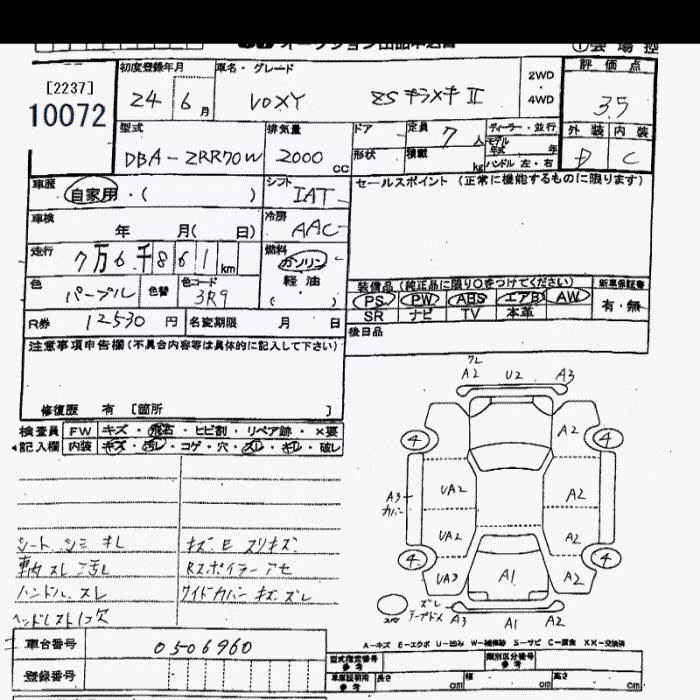 オークション出品申込書
① 会場控
[2237]
10072
初度登録年月
24 6月
車名・グレード
VOXY ZS キラメキⅡ
2WD・4WD
評価点
3.5
型式
DBA-ZRR70W
排気量
2000cc
ドア
形状
定員 7人
積載 kg
ディーラー・並行
モデル年式 年
ハンドル 左・右
外装 内装
D C
車歴
自家用・( )
シフト
IAT
セールスポイント (正常に機能するものに限ります)
車検 年 月( 日)
冷房
AAC
走行 7万6千861km
燃料
ガソリン
軽油
( )
色 パープル
色替
色コード
3R9
装備品 (純正品に限り○をつけてください)
新車保証書
PS PW ABS エアB AW
有・無
SR ナビ TV 本革
R券 12530円
名変期限 月 日
後日品
注意事項申告欄(不具合内容等は具体的に記入して下さい)
修復歴 有 [箇所 ]
検査員 FW キズ・飛石・ヒビ割・リペア跡・×要
記入欄 内装 キズ・汚レ・コゲ・穴・スレ・キレ・破レ
シート シミ キレ
車内 スレ 汚レ
ハンドル スレ
ヘッドレスト1欠
キズ E スリキズ
Rスポイラー アセ
サイドカバー キズ ズレ
ワレ
A2 U2 A3
4 A2 4
A3
カバー
UA2 A2
UA2 A2
4 4
UA3 A1 A2
ズレ
テープドメ
A3 A1 A2
スペア
A-キズ E-エクボ U-凹み W-補修跡 S-サビ C-腐食 XX-交換済
車台番号 0506960
登録番号
型式指定番号
参考
類別区分番号
参考
車庫証明用
参考
長さ cm 幅 cm 高さ cm